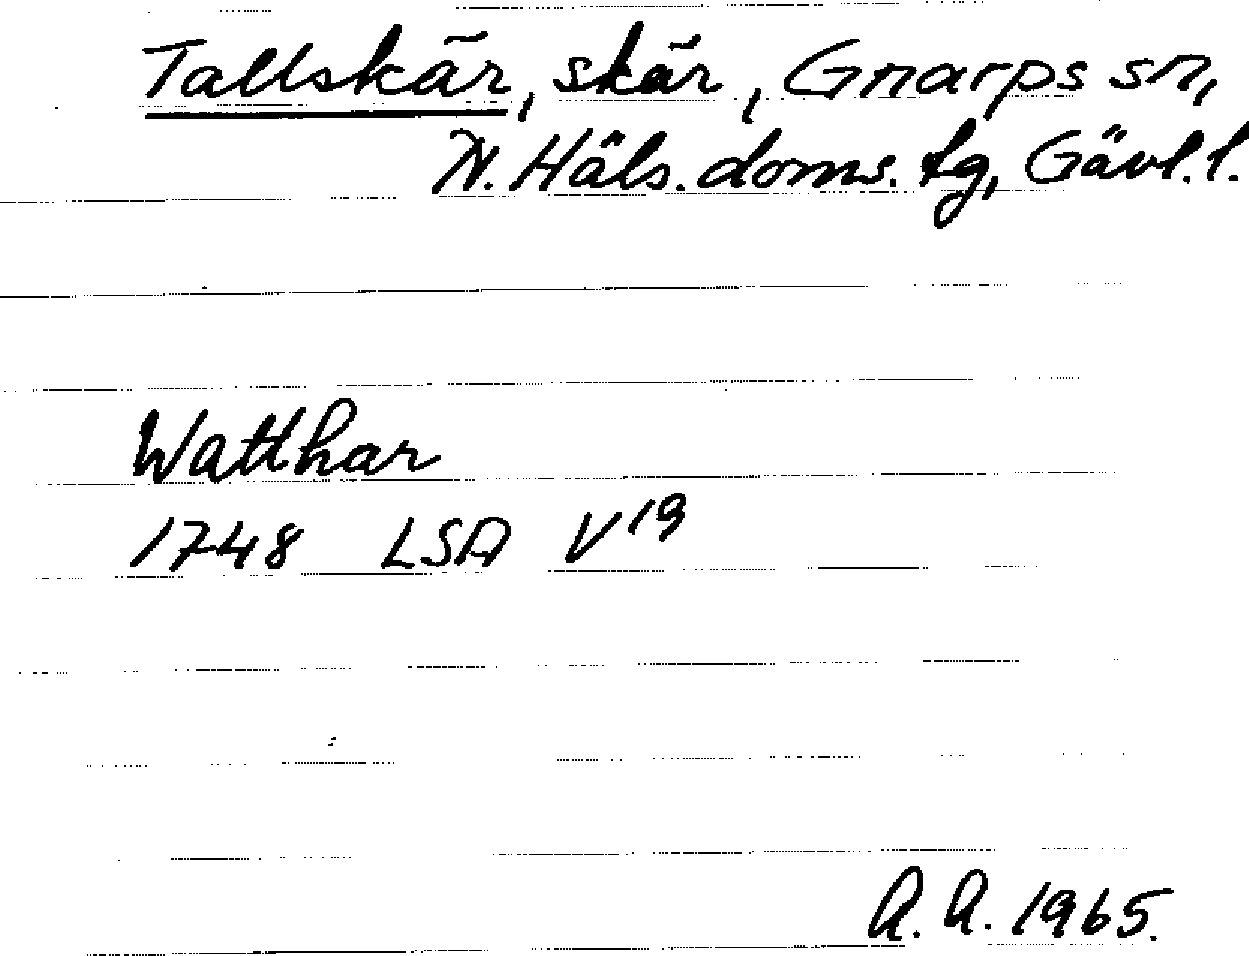 Tallskär, skär, Gnarps sn,
N. Häls. doms. tg, Gävl. l.
Watthar
1748 LSA V¹⁹
A. A. 1965.